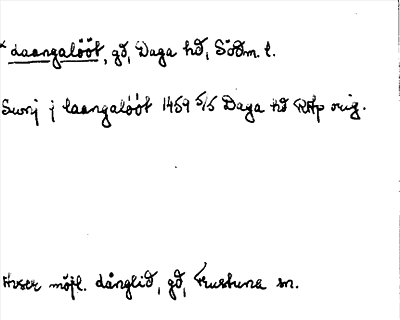 * daangalööt, gd, Daga hd, Södm. l.
Swnj j laangalööt 1459 5/5 Daga hd RAp orig.
Avser möjl. dånglid, gd, Frustuna sn.